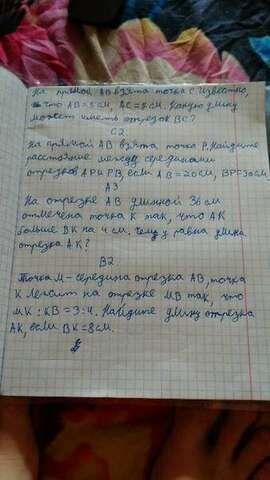 На прямой AB взята точка C. Известно,
что AB = 5 см, AC = 8 см. Какую длину
может иметь отрезок BC?
C2
На прямой AB взята точка P. Найдите
расстояние между серединами
отрезков AP и PB, если AB = 20 см, BP = 30 см.
A3
На отрезке AB длиной 36 см
отмечена точка K так, что AK
больше BK на 4 см. Чему равна длина
отрезка AK?
B2
Точка M - середина отрезка AB, точка
K лежит на отрезке MB так, что
MK : KB = 3:4. Найдите длину отрезка
AK, если BK = 8 см.